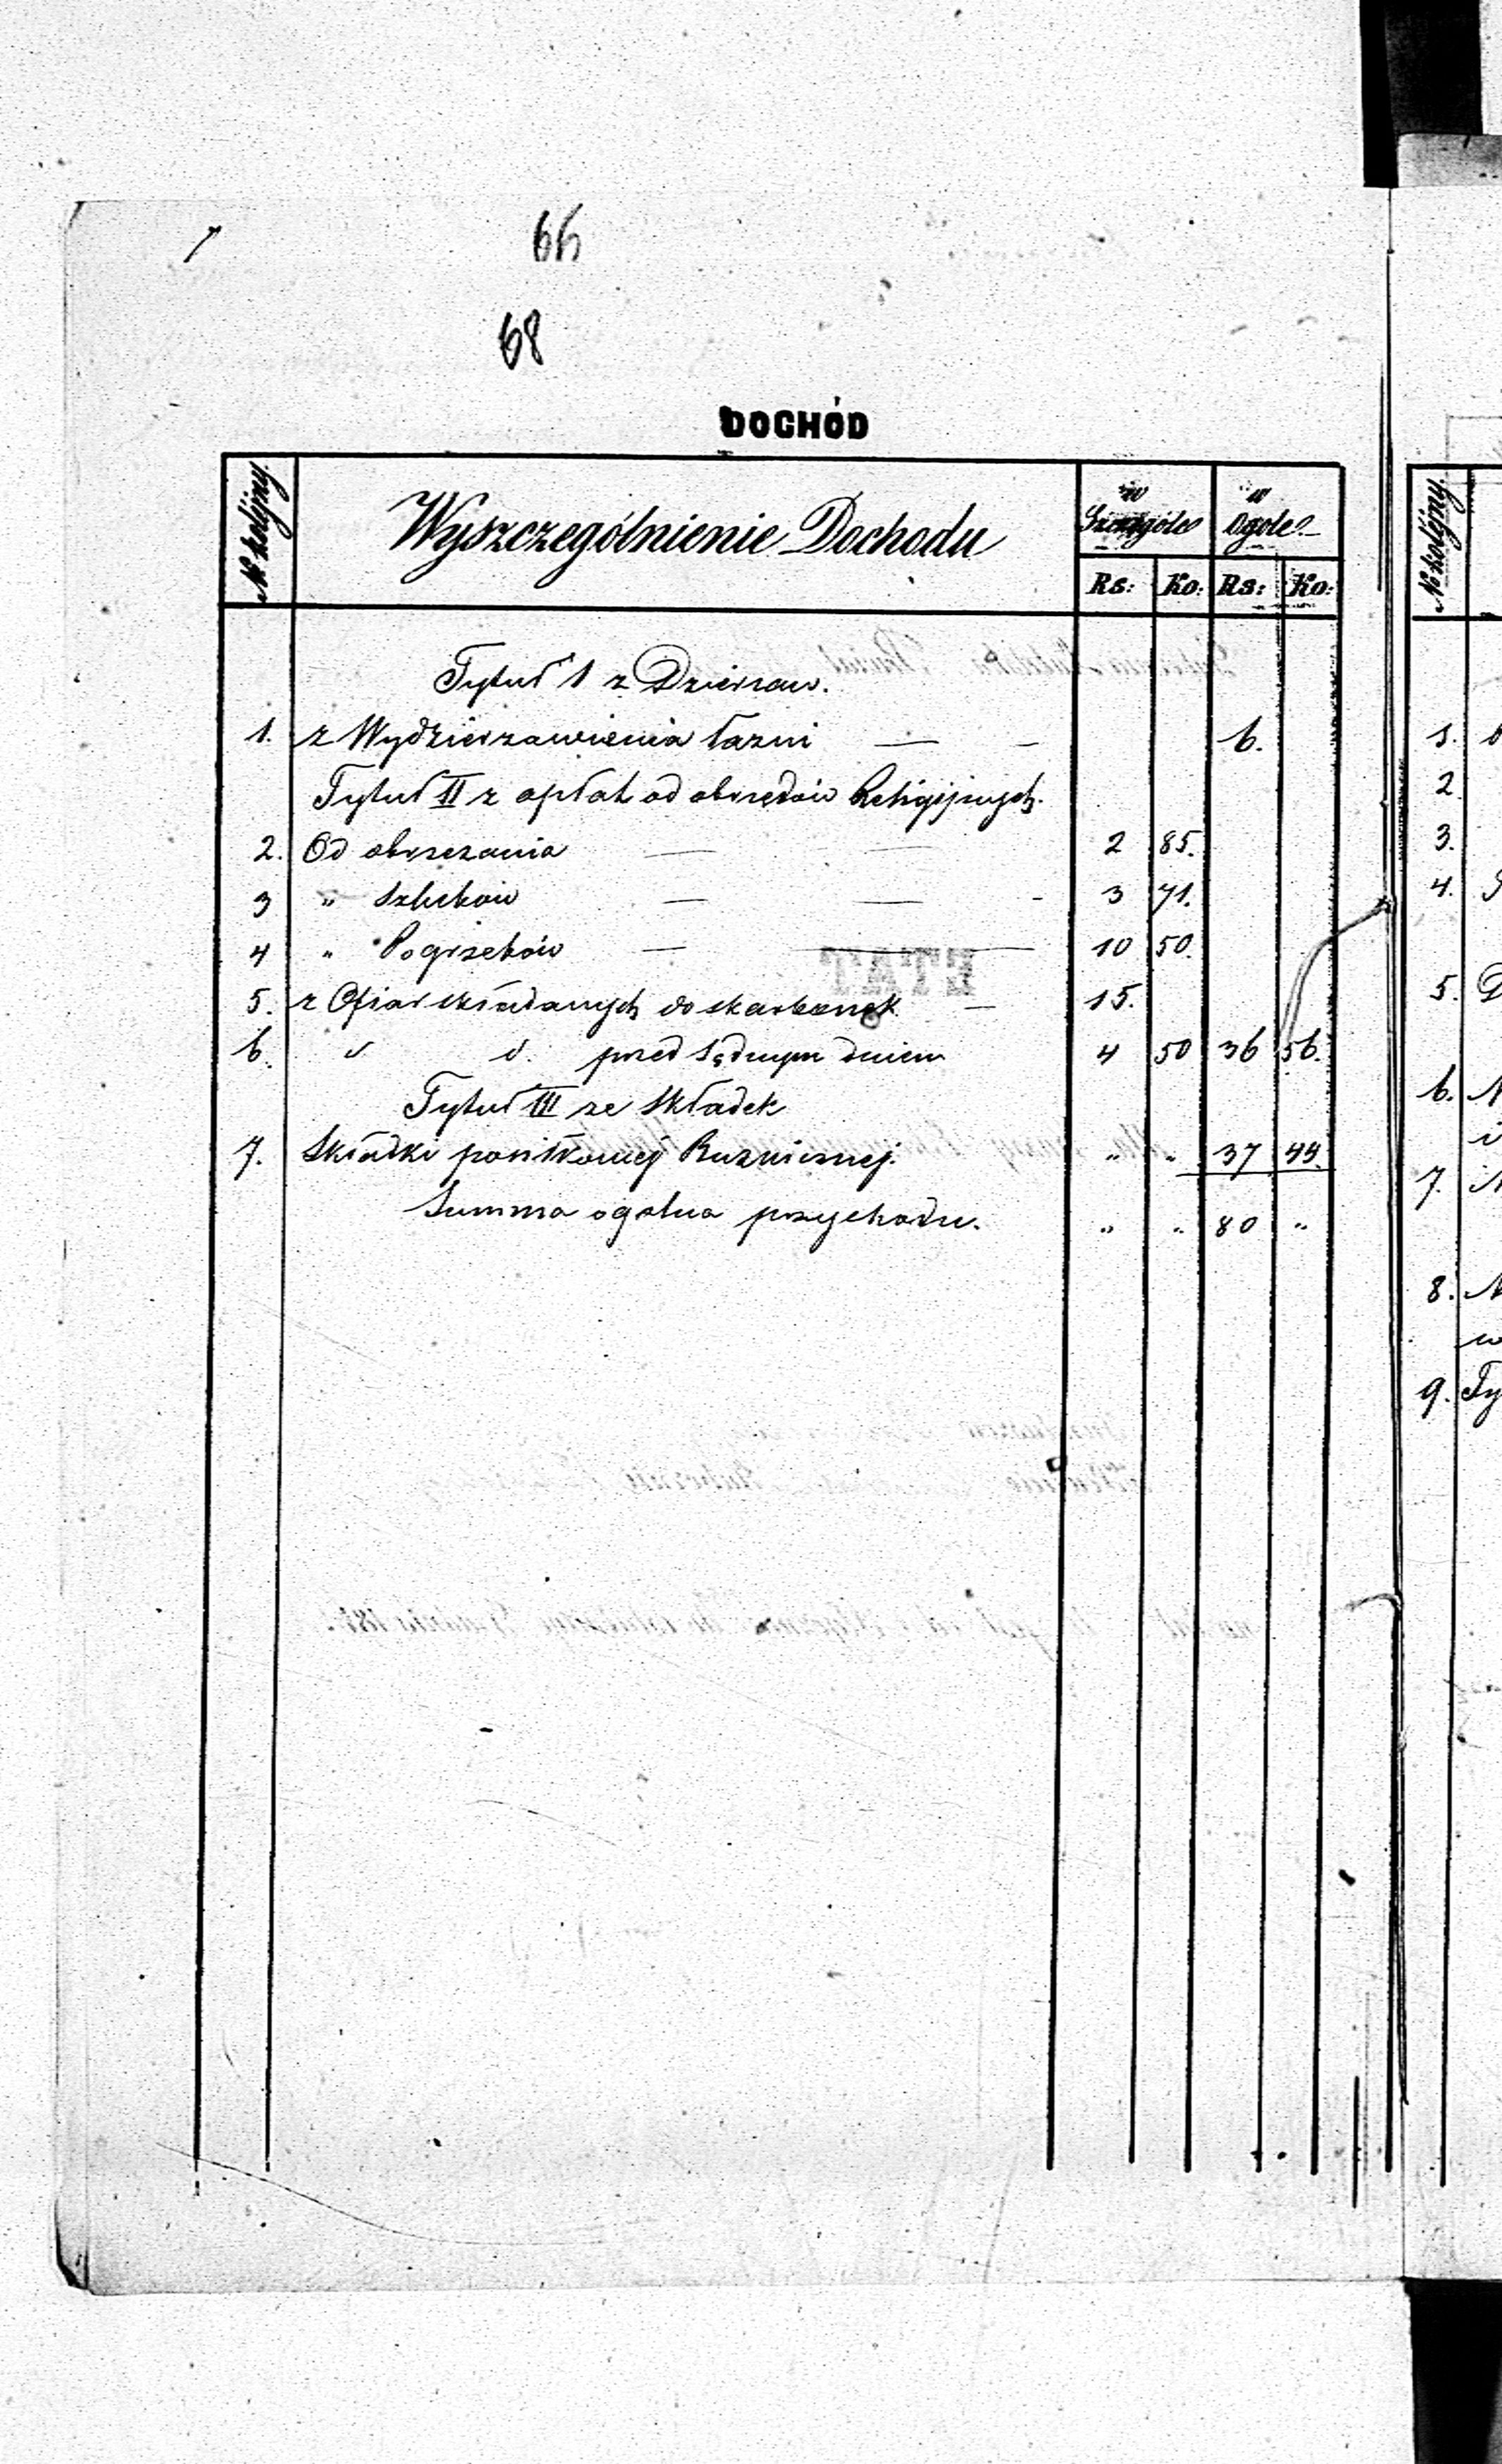 66
68
DOCHÓD
No kolijny. Wyszczególnienie Dochodu w Szczególe w Ogole
Rs: Ko: Rs: Ko:
Tytuł 1 z Dzierzaw.
1. z Wydzierzawienia łazni — - 6.
Tytuł II z opłat od obrzędów Religijnych.
2. Od obrzezania — — 2 85.
3 " Szlubów — — - 3 71.
4 " Pogrzebów — — 10 50.
5. z Ofiar składanych do skarbonek — 15.
6. d d. przed Sądnym dniem 4 50 36 56.
Tytuł III ze Składek
7. Składki " " 37 44.
Summa ogolna przychodu. " " 80 "
No kolijny.
1.
2.
3.
4.
5.
6.
7.
8.
9. Ty